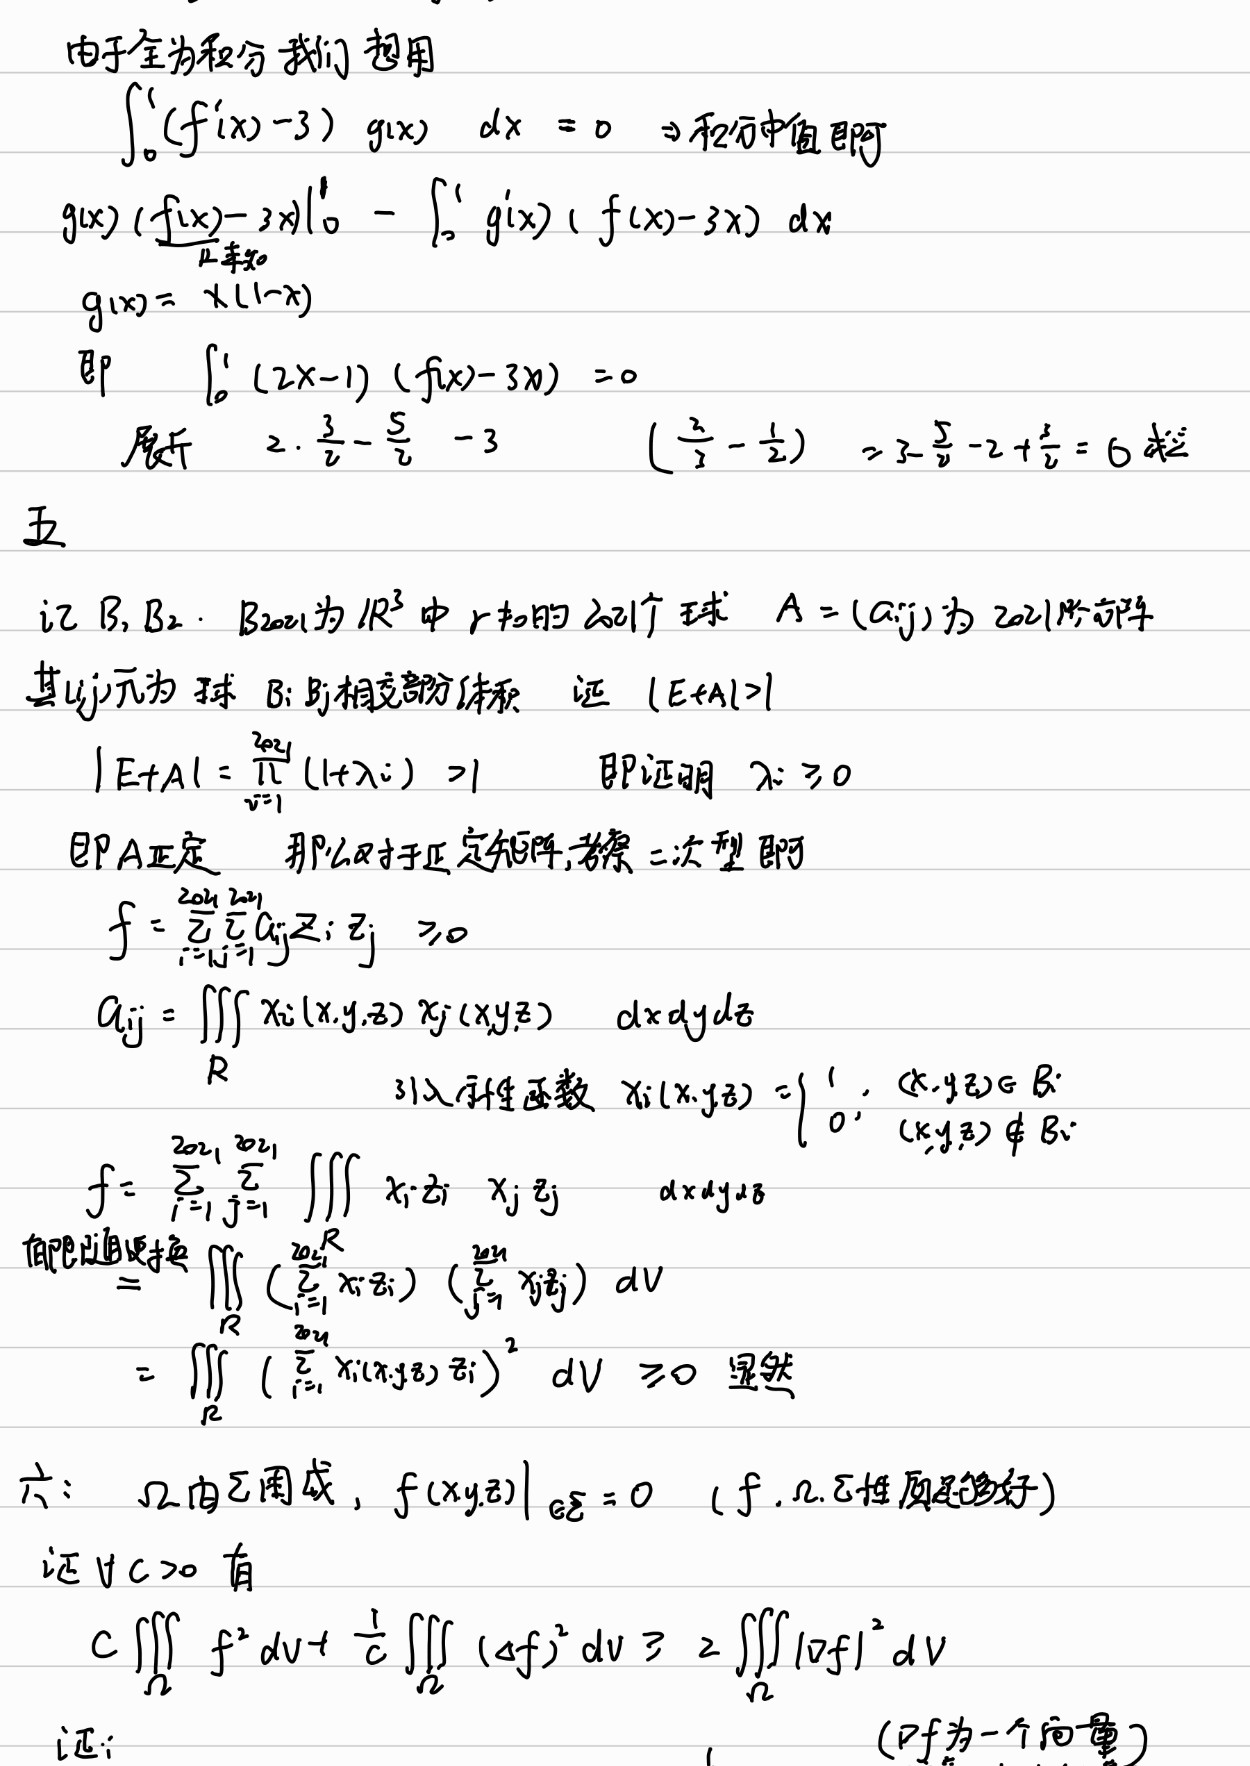 由于全为积分 我们想用
∫₀¹ (f'(x)-3) g(x) dx = 0 ⇒ 积分中值即可
g(x) (f(x)-3x)|₀¹ - ∫₀¹ g'(x) ( f(x)-3x) dx
未知
g(x) = x(1-x)
即 ∫₀¹ (2x-1) (f(x)-3x) = 0
展开 2·3/2 - 5/2 - 3 (2/3 - 1/2) = 3-5/2-2+3/2 = 0 成立
五
记 B₁ B₂ · B₂₀₂₁为 R³ 中 r≠0的 2021个球 A = (aij) 为 2021阶方阵
其(i,j)元为 球 Bi Bj相交部分体积 证 |E+A|>1
|E+A| = ∏_{i=1}^{2021} (1+λi) >1 即证明 λi ≥ 0
即A正定 那么对于正定矩阵,考察二次型即可
f = Σ_{i=1}^{2021} Σ_{j=1}^{2021} aij zi zj ≥0
aij = ∭_R xi(x.y.z) xj(x,y,z) dxdydz
引入示性函数 xi(x.y.z) = { 1, (x.y.z)∈ Bi
0, (x,y,z) ∉ Bi
f = Σ_{i=1}^{2021} Σ_{j=1}^{2021} ∭_R xi zi xj zj dxdydz
有限随便换
= ∭_R (Σ_{i=1}^{2021} xi zi) (Σ_{j=1}^{2021} xj zj) dV
= ∭_R ( Σ_{i=1}^{2021} xi(x.y.z) zi )² dV ≥0 显然
六: Ω由Σ围成, f(x.y.z)|∈Σ = 0 (f.Ω.Σ性质足够好)
证 ∀ C>0 有
C ∭_Ω f² dV + 1/C ∭_Ω (Δf)² dV ≥ 2 ∭_Ω |∇f|² dV
证:
(∇f为一个向量)